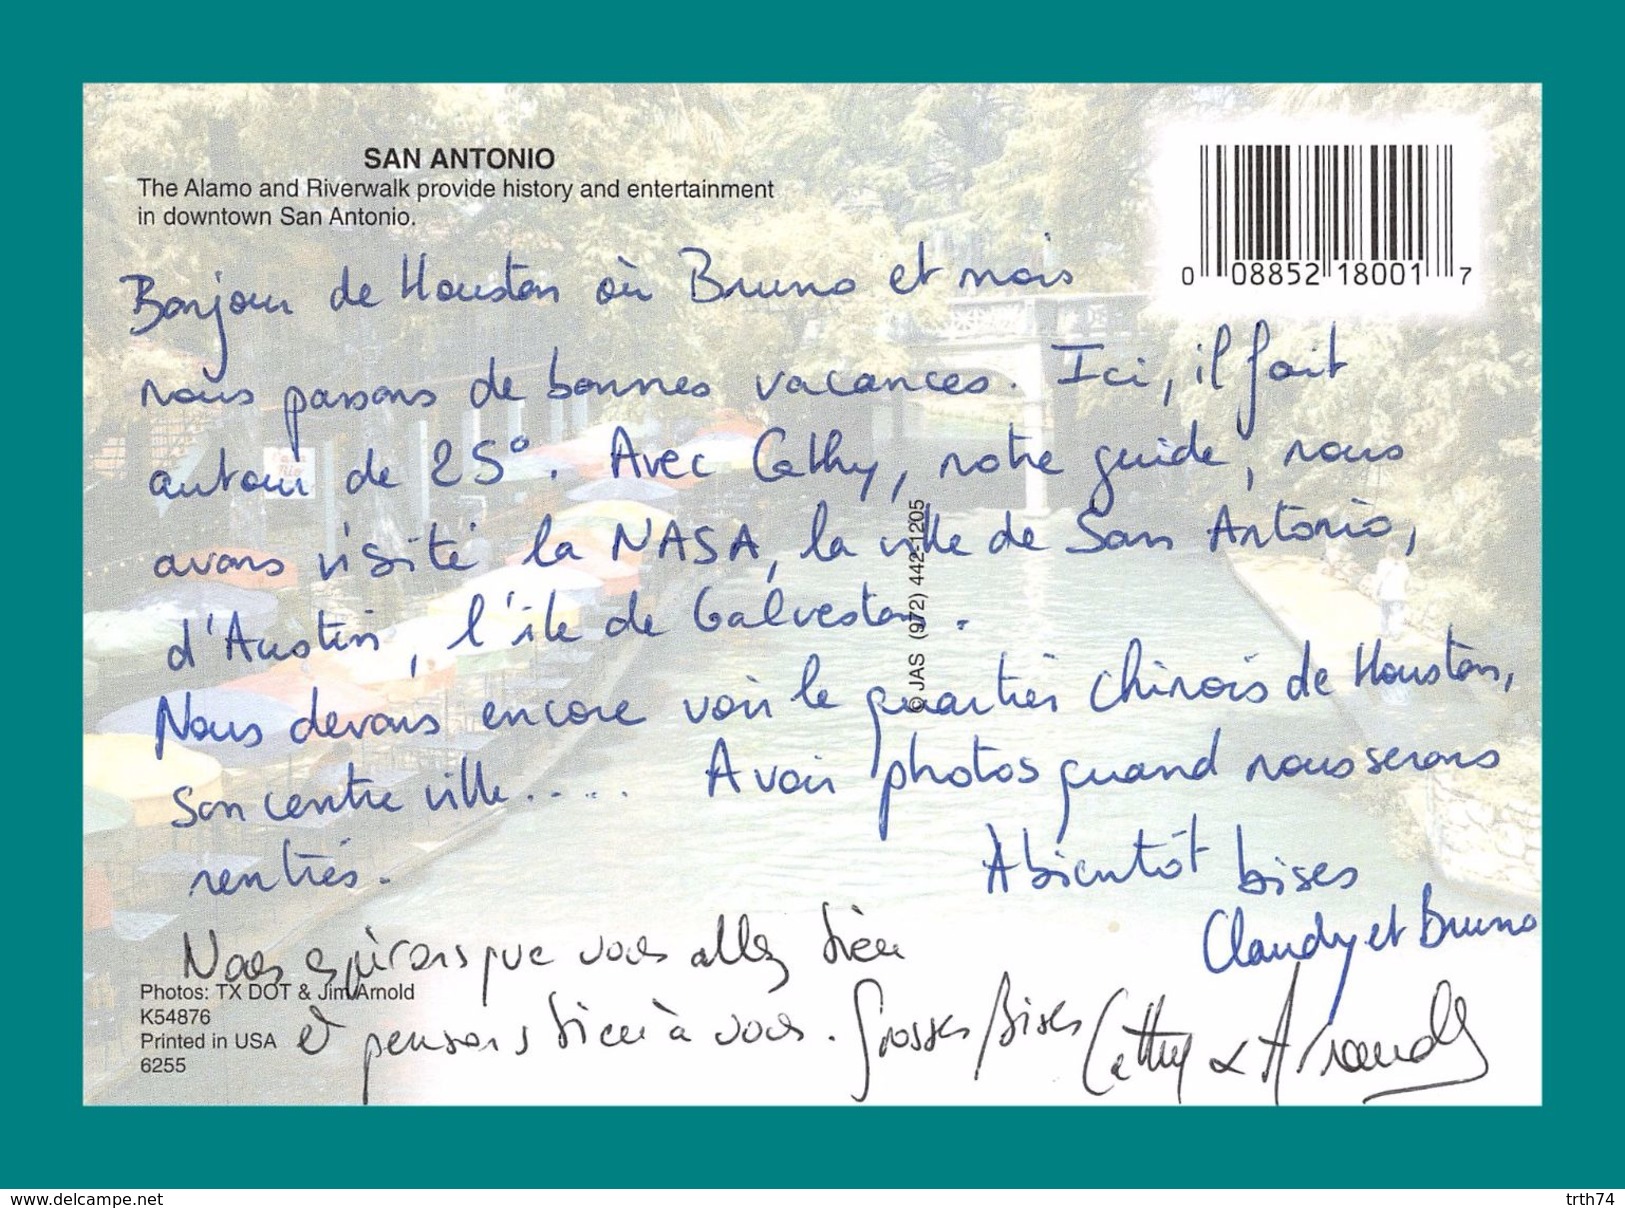 SAN ANTONIO
The Alamo and Riverwalk provide history and entertainment
in downtown San Antonio.
0 08852 18001 7
Bonjour de Houston où Bruno et mois
nous passons de bonnes vacances. Ici, il fait
autour de 25°. Avec Cathy, notre guide, nous
avons visité la NASA, la ville de San Antonio,
d'Austin, l'île de Galveston.
Nous devons encore voir le quartier chinois de Houston,
son centre ville..... A voir photos quand nous serons
rentrés.
A bientôt bises
Claudy et Bruno
Nous espérons que vous allez bien
et pensons bien à vous. Grosses bises Cathy & Arnaud
© JAS (972) 442-1205
Photos: TX DOT & Jim Arnold
K54876
Printed in USA
6255
www.delcampe.net
trth74